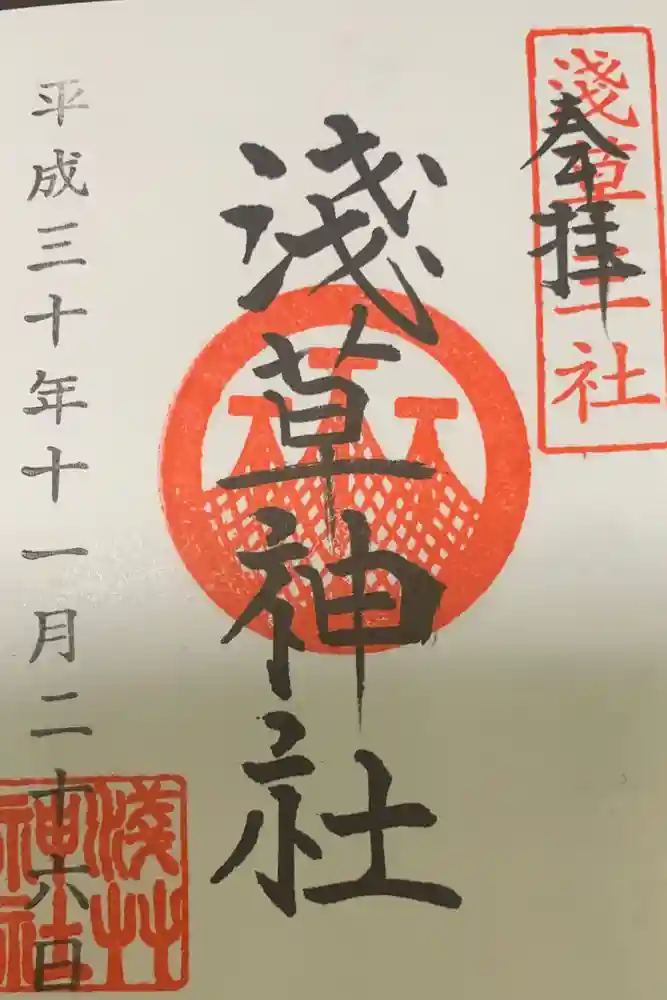 淺草三社
奉拝
淺草神社
平成三十年十一月二十六日
淺草
神社